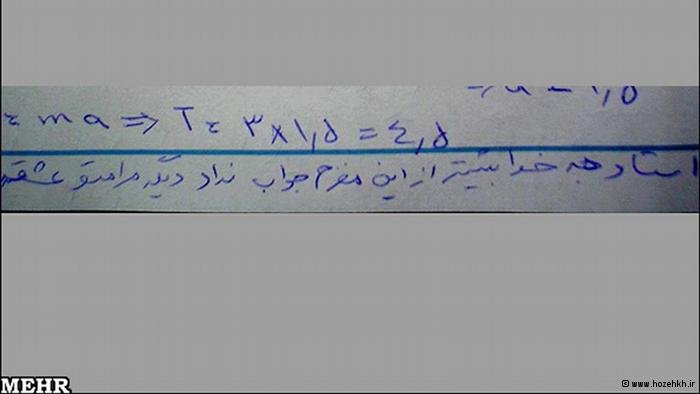 a = ۱٫۵
= ma ⇒ T = ۳ × ۱٫۵ = ٤٫۵
استاد به خدا بیشتر از این مغزم جواب نداد دیگه مرامتو عشقه
MEHR
© www.hozehkh.ir